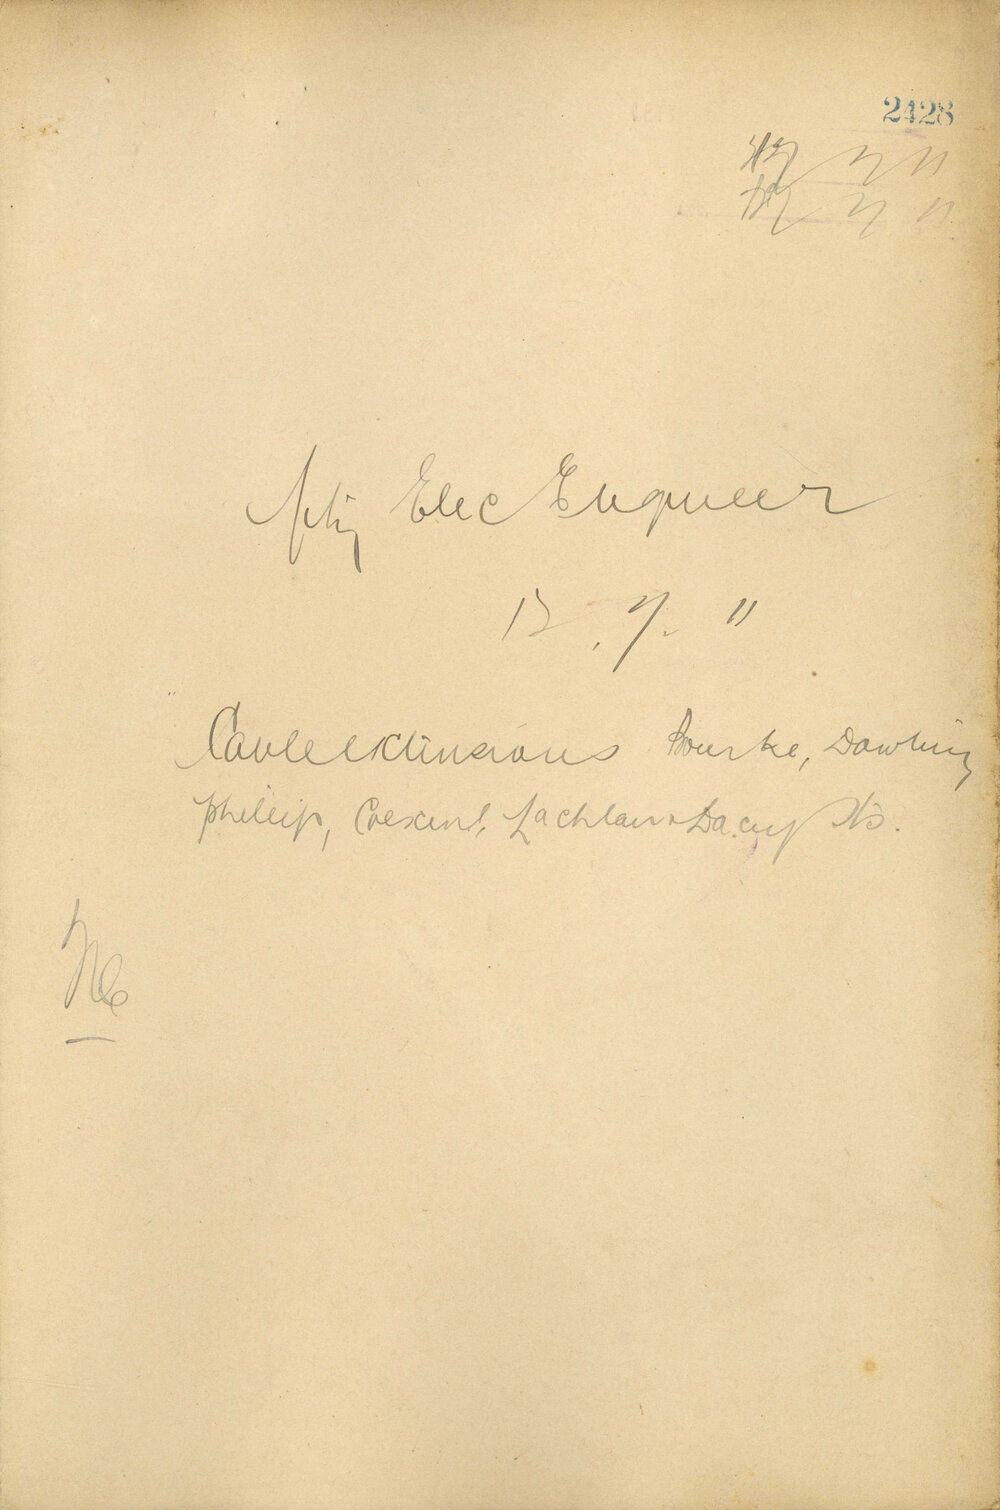 2428
7 11
7 11
Actg Elec Engineer
13. 7. 11
Cable extensions Bourke, Dowling
Phillip, Crescent, Lachlan & Dacey Sts.